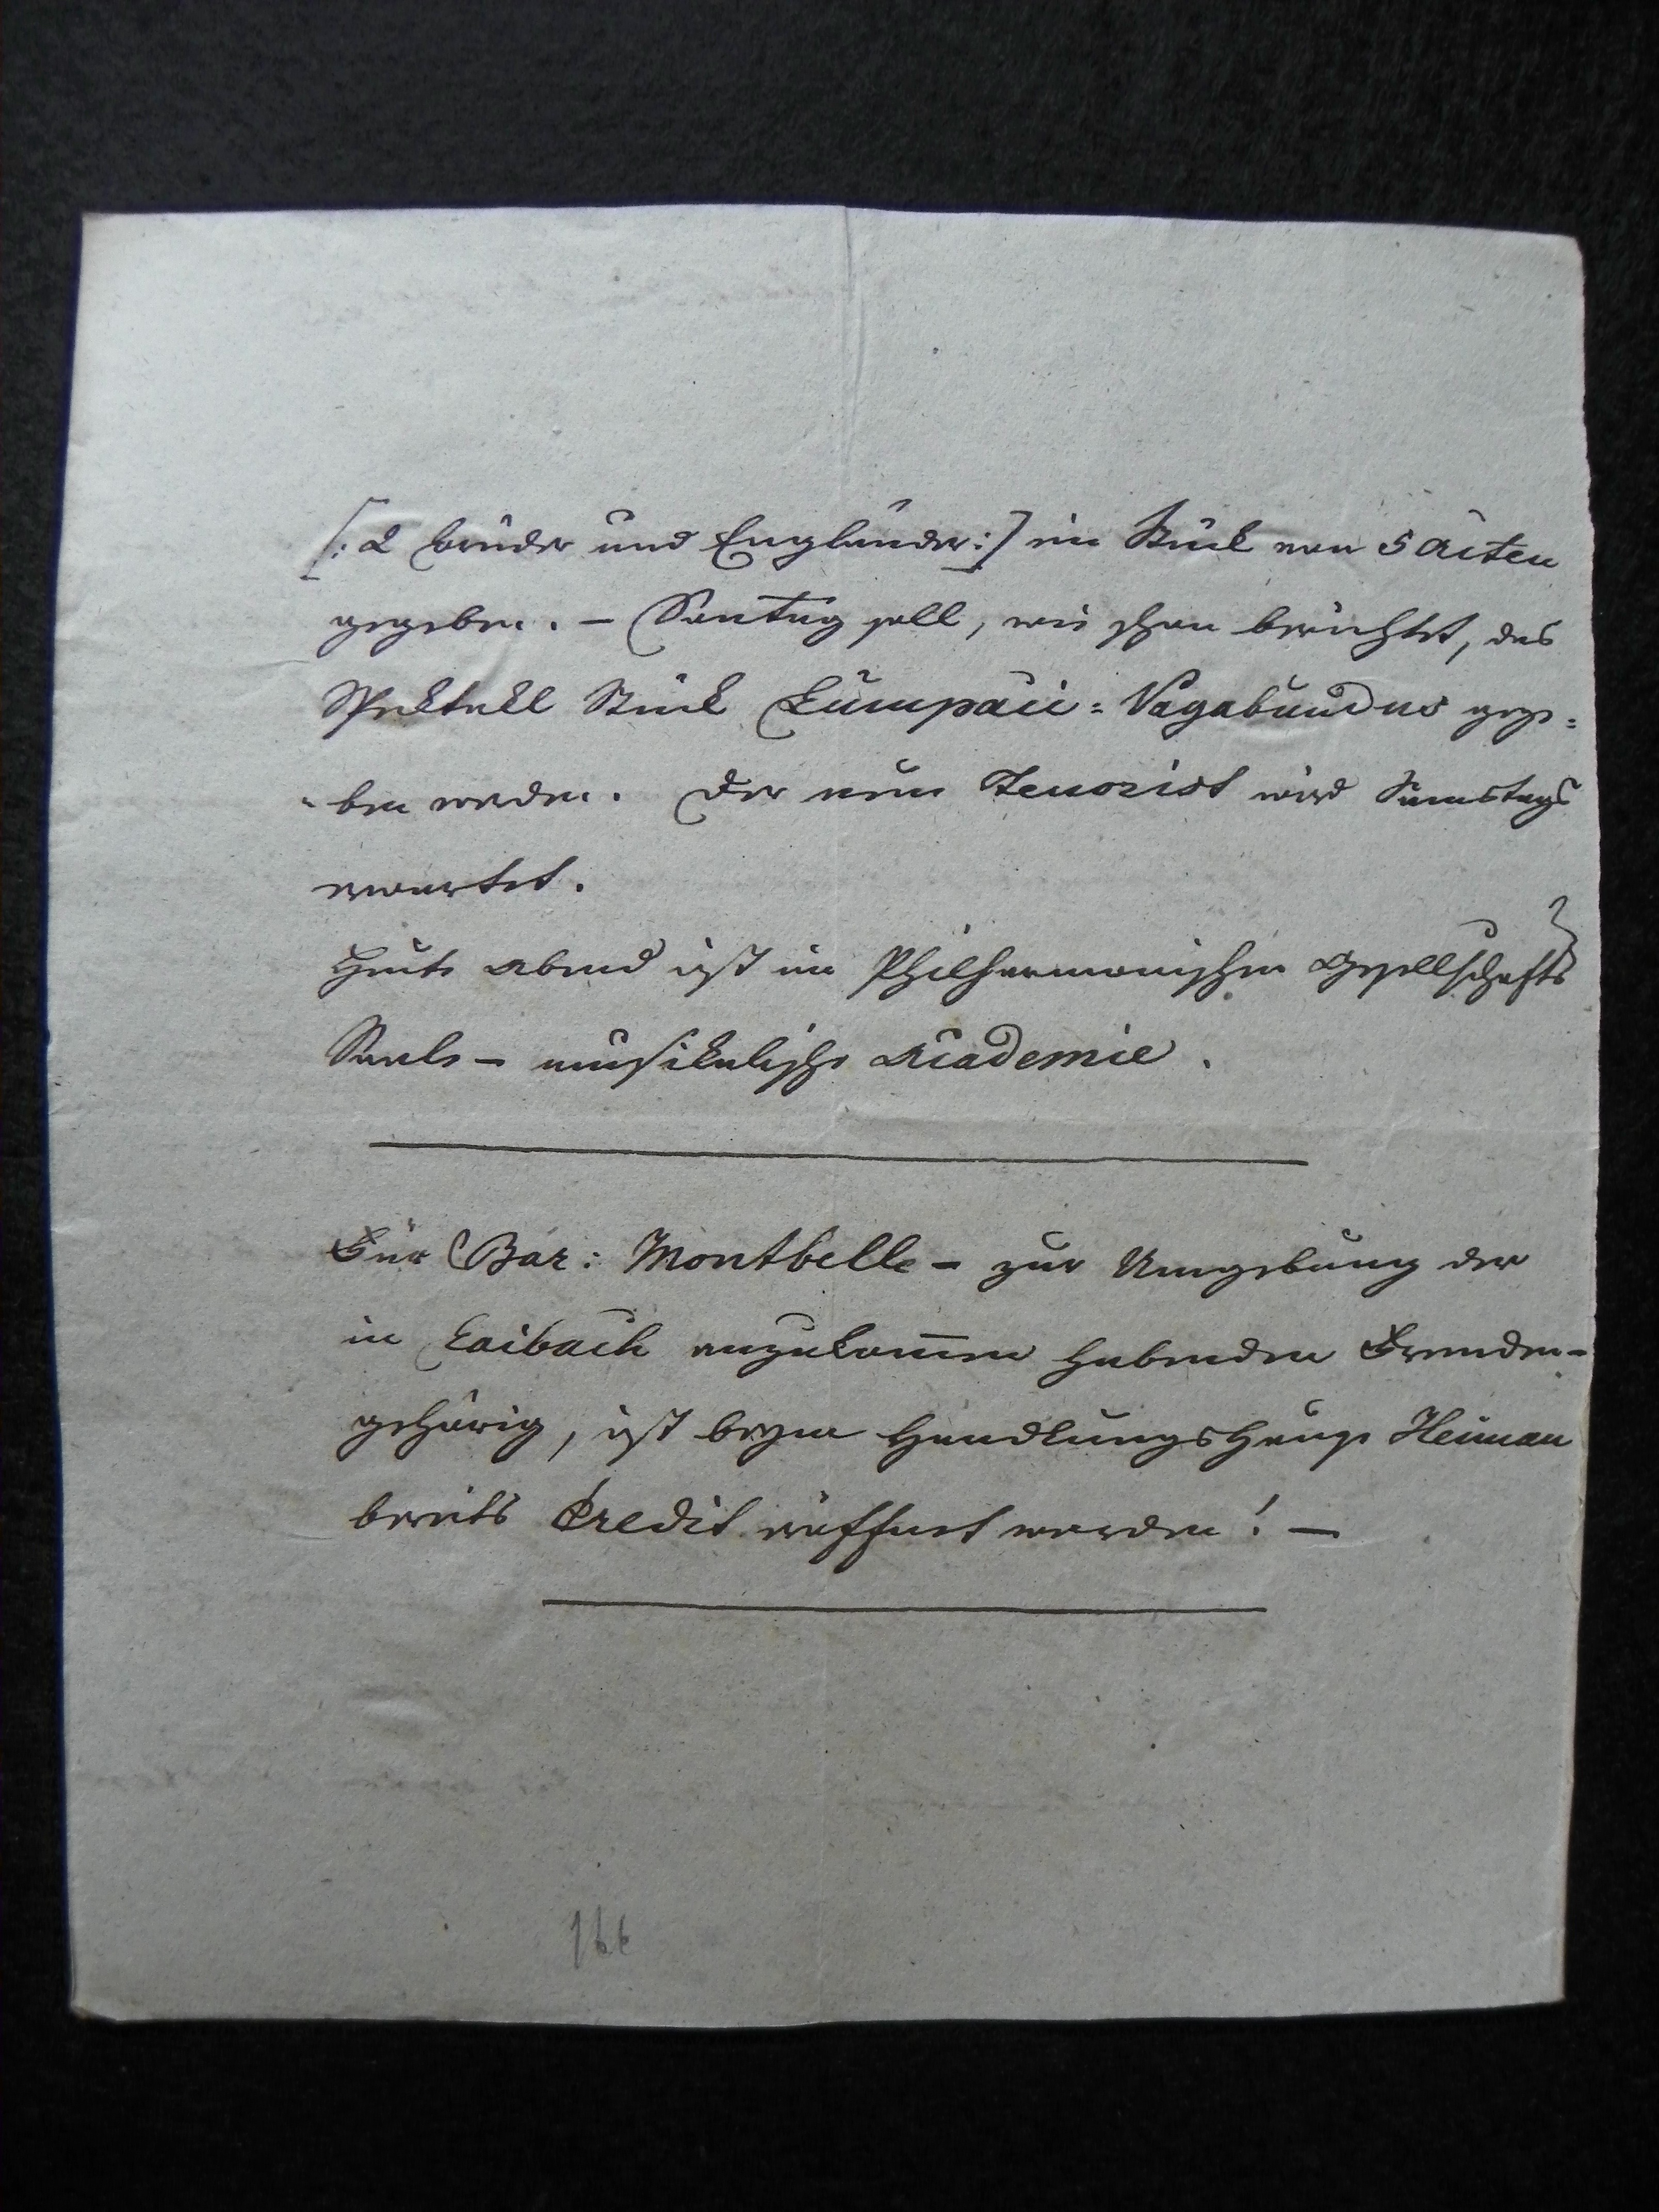 [: 2 Brüder und Engländer :] ein Stück von 5 Acten
gegeben. – Sontag soll, wie schon berichtet, das
Spektakl Stück Lumpaci = Vagabundus gege=
=ben werden. Der neue Tenorist wird Samstags
erwartet.
Heute Abend ist im Philharmonischen Gesellschafts
Saale – musikalische Academie.
Für Bar: Montbelle – zur Umgebung der
in Laibach anzukom̅en habenden Fremden –
gehörig, ist beym Handlungshause Heiman
bereits Credit eröffnet worden! –
166